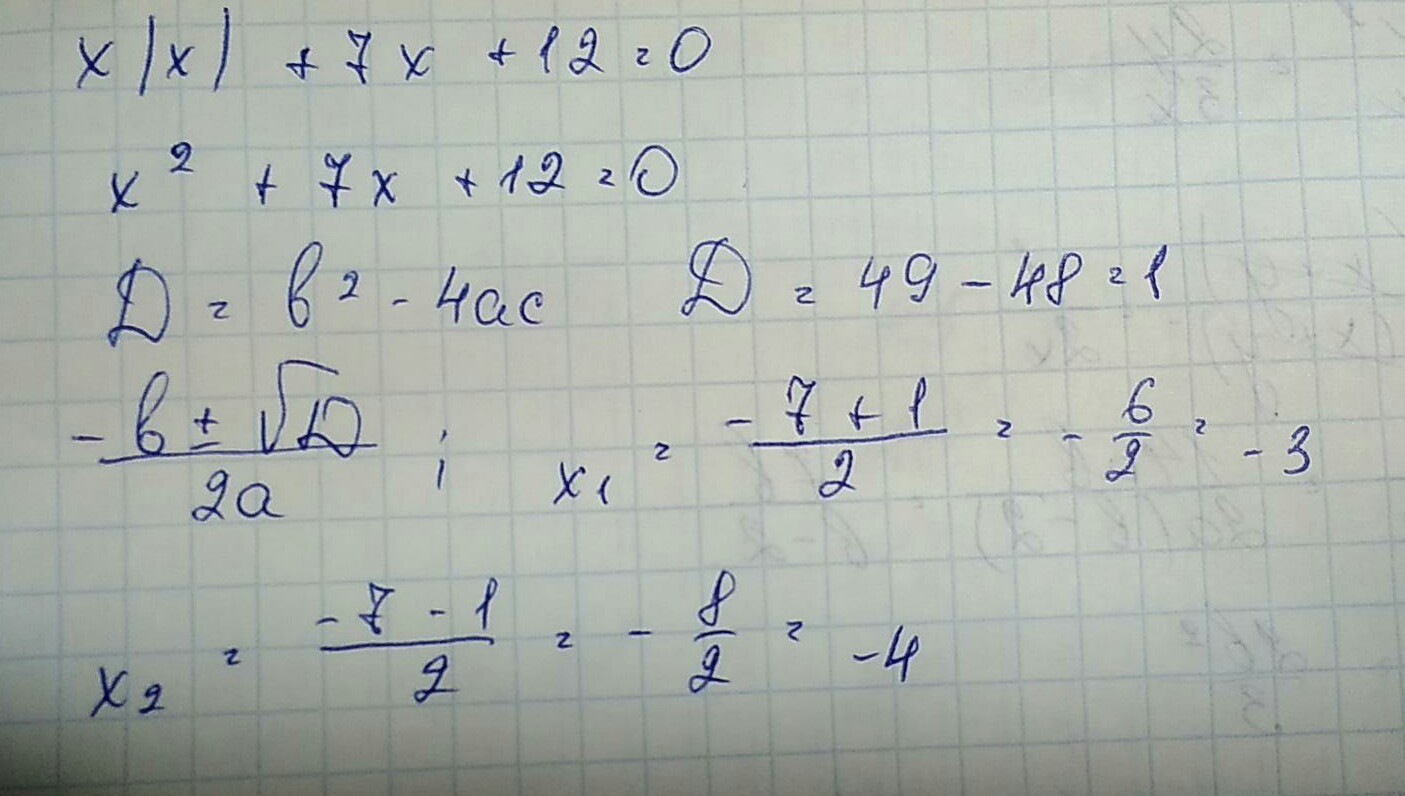 x|x| + 7x + 12 = 0
x² + 7x + 12 = 0
D = b² - 4ac D = 49 - 48 = 1
(-b ± √D)/2a ; x₁ = (-7 + 1)/2 = -6/2 = -3
x₂ = (-7 - 1)/2 = -8/2 = -4